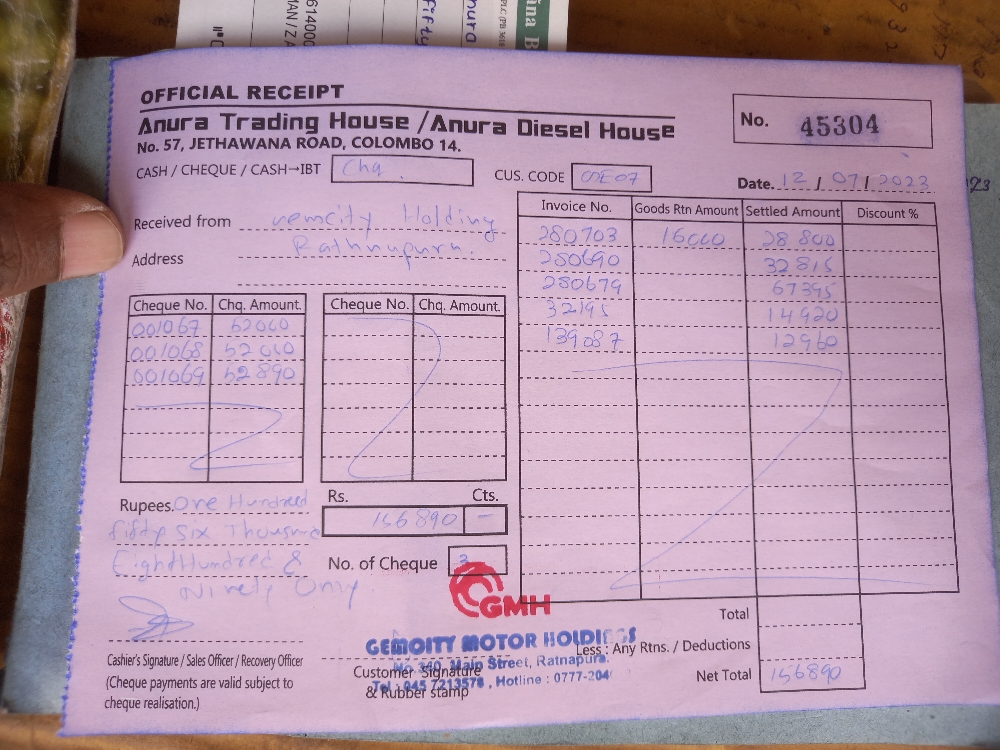 OFFICIAL RECEIPT
Anura Trading House / Anura Diesel House
No. 57, JETHAWANA ROAD, COLOMBO 14.
No. 45304
CASH / CHEQUE / CASH→IBT Chq.
CUS. CODE
Date. 12 / 07 / 2023
Received from Holding
Address
Invoice No. Goods Rtn Amount Settled Amount Discount %
280703 16000 28 800
280690 32 815
280679 67395
32195 14920
139087 12960
Cheque No. Chq. Amount. Cheque No. Chq. Amount.
001067 52000
001068 52000
001069 52890
Rupees. One Hundred
fifty Six Thousand
Eight Hundred &
Ninety Only
Rs. Cts.
156890 —
No. of Cheque 3
GMH
GEMCITY MOTOR HOLDINGS
No 340, Main Street, Ratnapura.
Tel : 045 7213578, Hotline : 0777-204
Customer Signature
& Rubber stamp
Cashier's Signature / Sales Officer / Recovery Officer
(Cheque payments are valid subject to
cheque realisation.)
Total
Less : Any Rtns. / Deductions
Net Total 156890